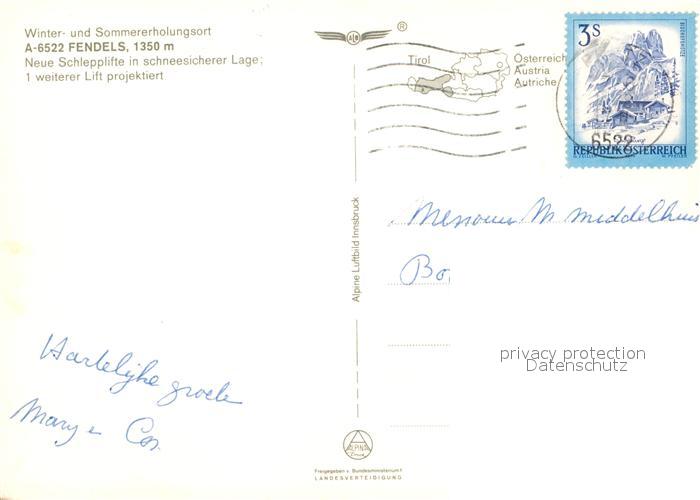 Winter- und Sommererholungsort
A-6522 FENDELS, 1350 m
Neue Schlepplifte in schneesicherer Lage;
1 weiterer Lift projektiert
ALPINE
®
Tirol
Österreich
Austria
Autriche
3 S
6522
REPUBLIK ÖSTERREICH
Alpine Luftbild Innsbruck
M Middelhuis
Bo
privacy protection
Datenschutz
Hartelijke groete
Mary e Cor.
ALPINA
Druck
Freigegeben v. Bundesministerium f.
LANDESVERTEIDIGUNG